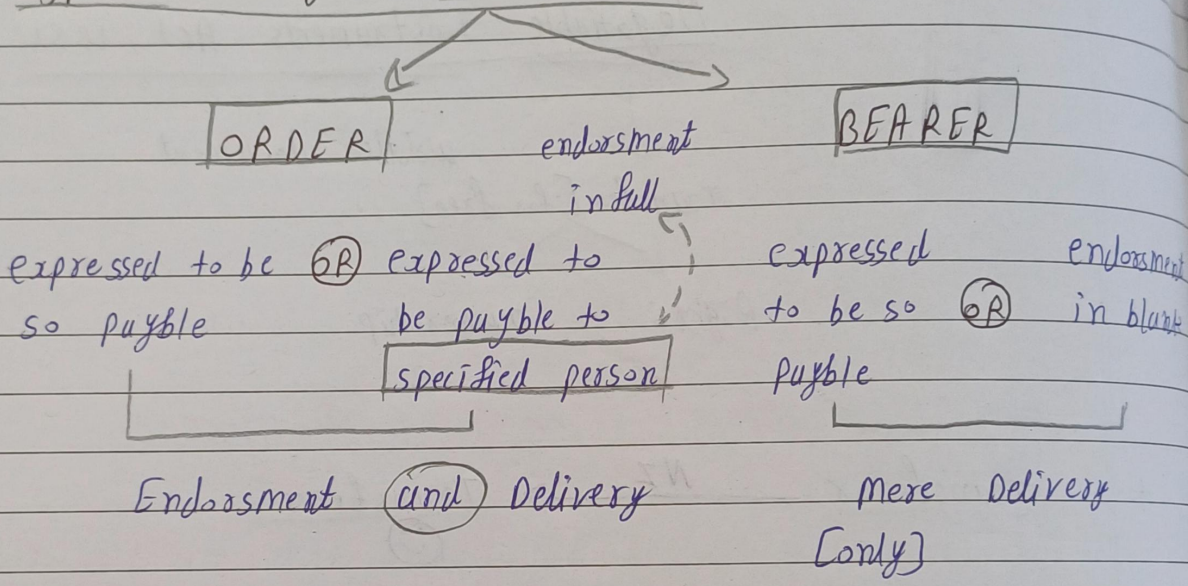 ORDER
BEARER
endorsment
in full
expressed to be OR expressed to
so payble
be payble to
specified person
expressed
to be so OR
payble
endorsment
in blank
Endorsment and Delivery
Mere Delivery
[only]